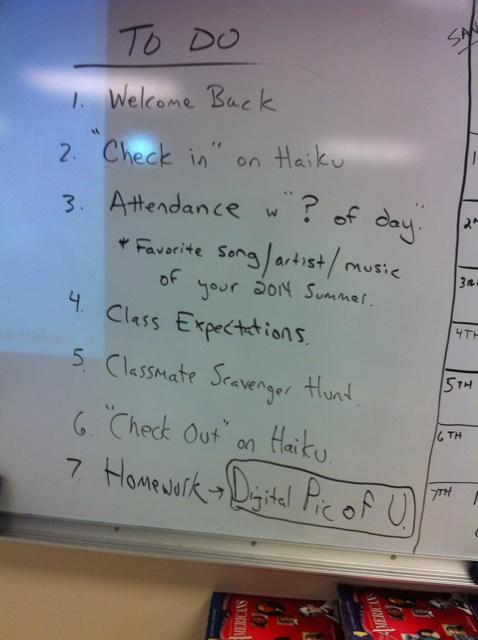 TO DO
1. Welcome Back
2. "Check in" on Haiku
3. Attendance w "? of day."
* Favorite song/artist/music
of your 2014 Summer.
4. Class Expectations.
5. Classmate Scavenger Hunt.
6. "Check Out" on Haiku.
7. Homework → Digital Pic of U.
3RD
4TH
5TH
6TH
7TH
AMERICANS
AMERICANS